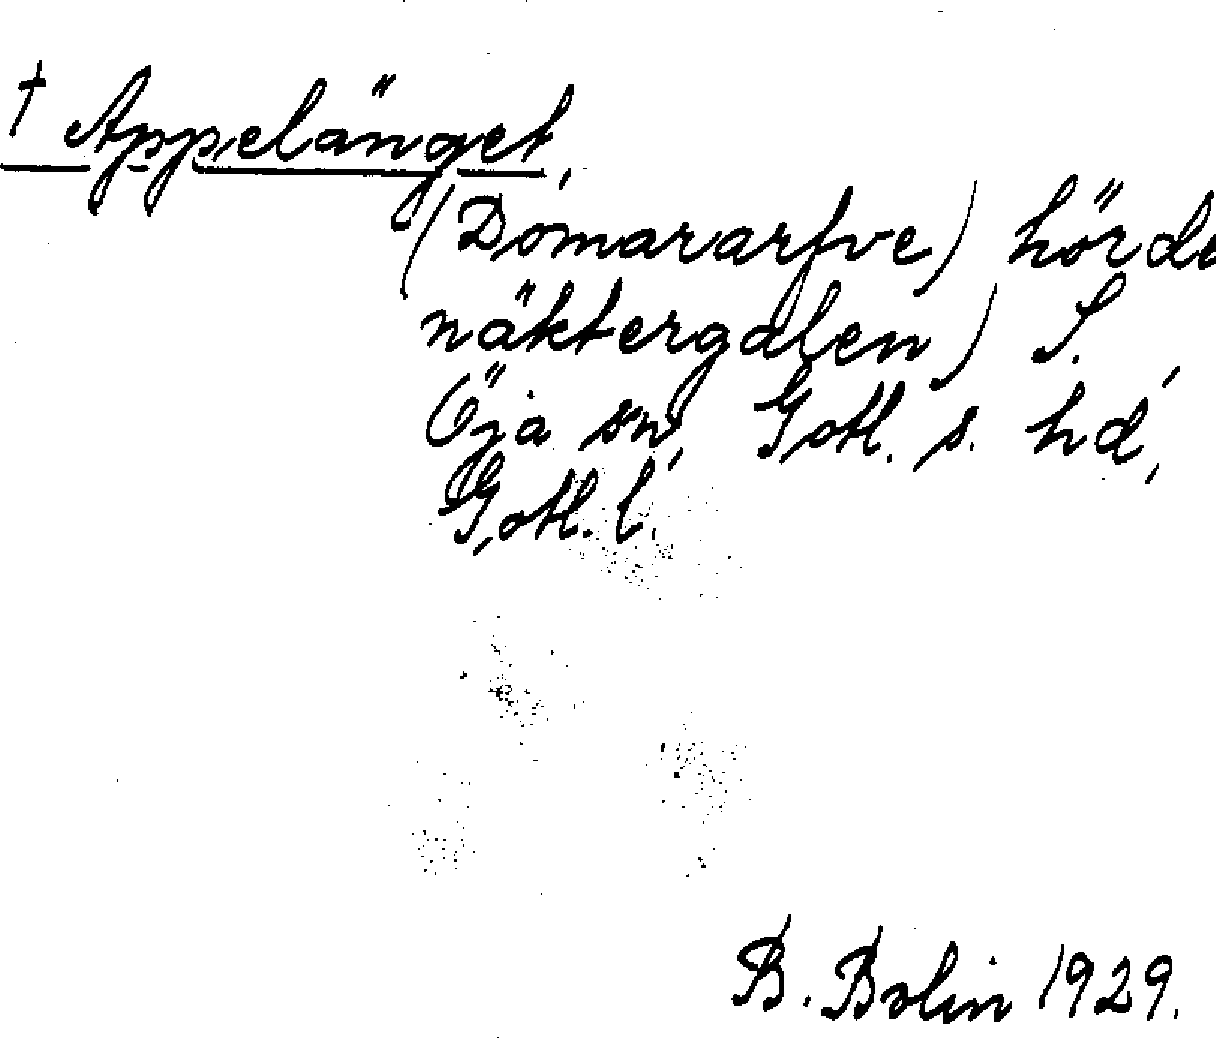 † Appelänget,
(Domararfve) hörde
näktergalen) S.
Öja sn, Gotl. s. hd,
Gotl. l.
B. Bolin 1929.